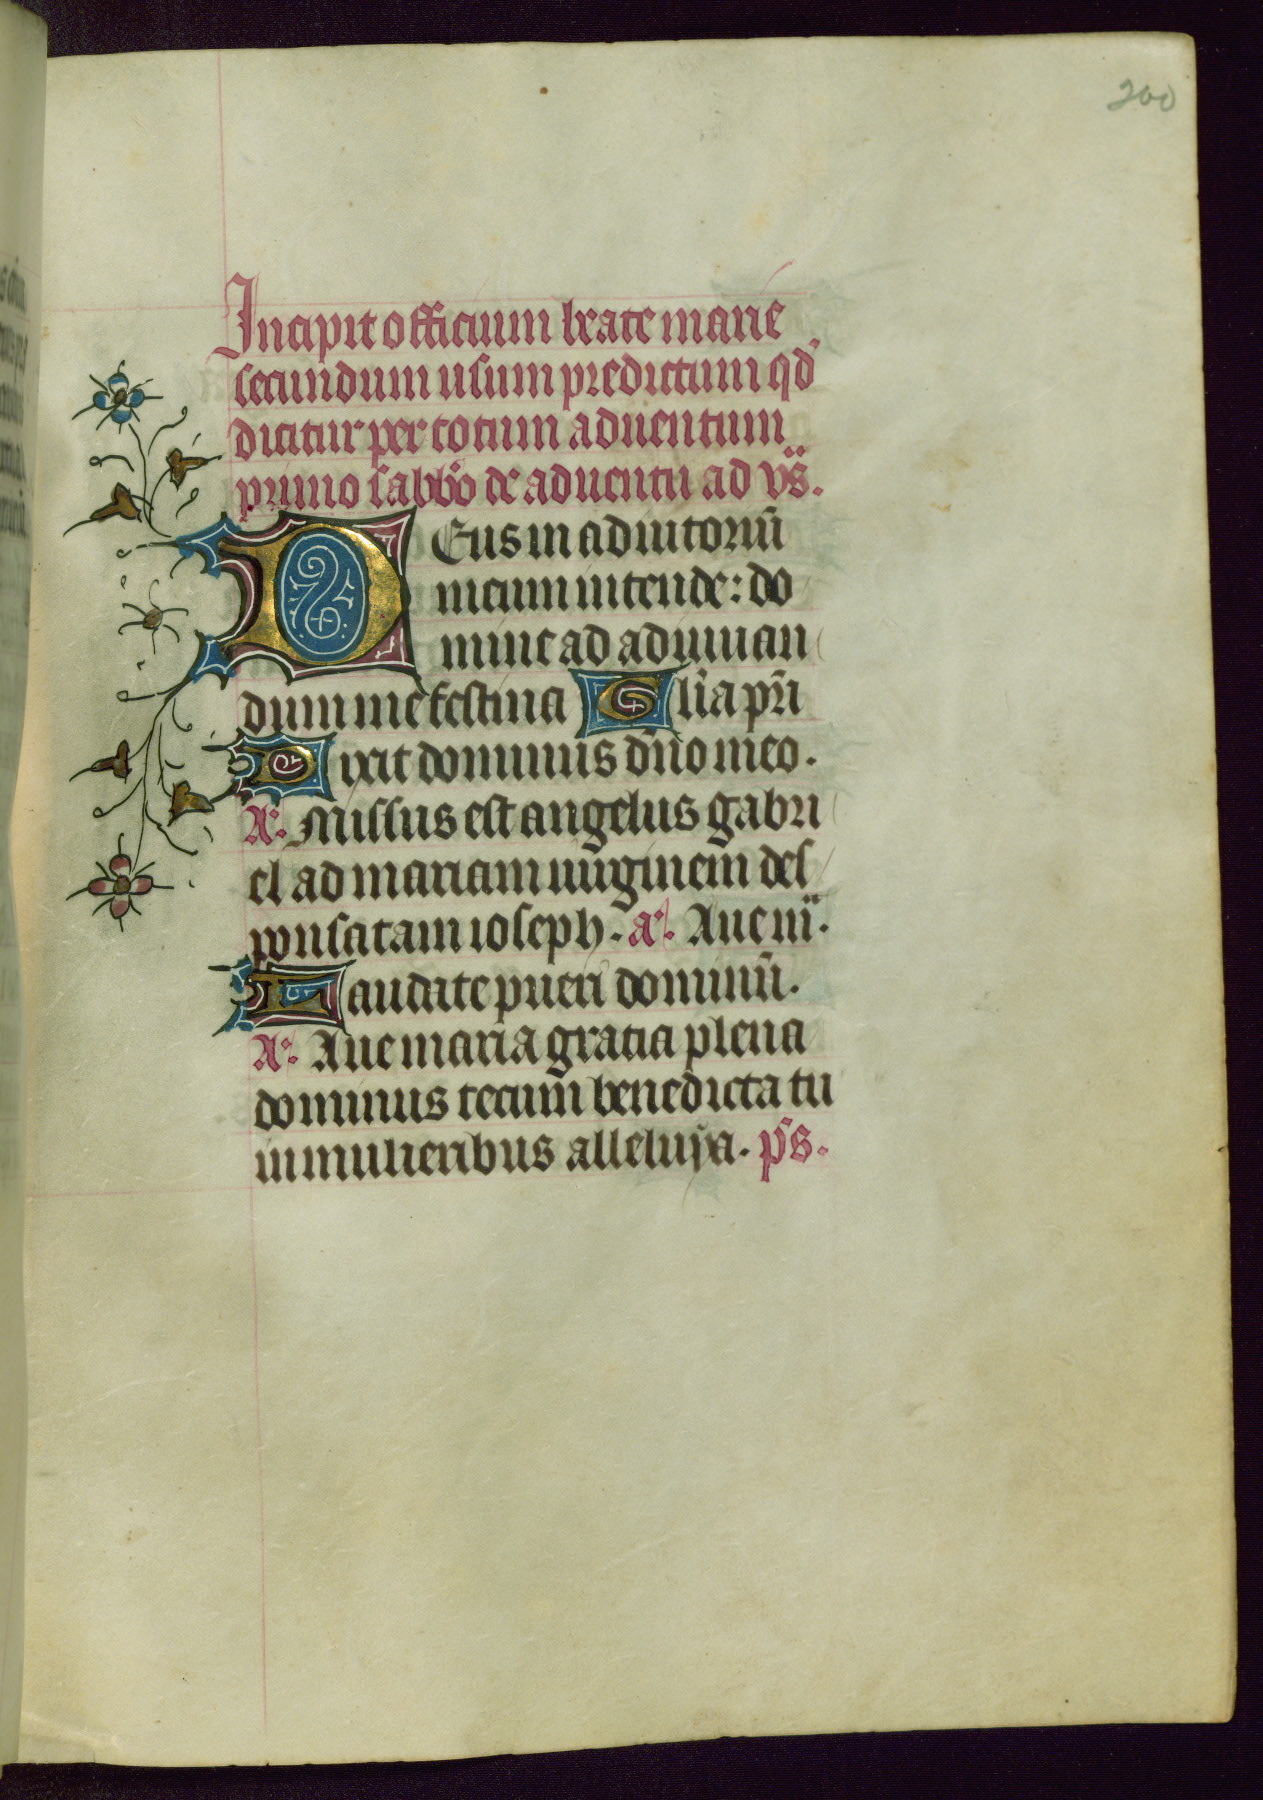 200
Incipit officium beate marie
secundum usum predictum qd̛
dicitur per totum aduentum
primo sabb̄o de aduentu ad vs̄.
DEus in adiutoriū
meum intende: do
mine ad adiuuan
dum me festina Gl̄ia pr̄i
Dixit dominus dn̄o meo.
A͛. Missus est angelus gabri
el ad mariam uirginem des
ponsatam ioseph. a͛. Aue m̄.
Laudate pueri dominū.
A͛. Aue maria gratia plena
dominus tecum benedicta tu
in mulieribus alleluya. ps̄.